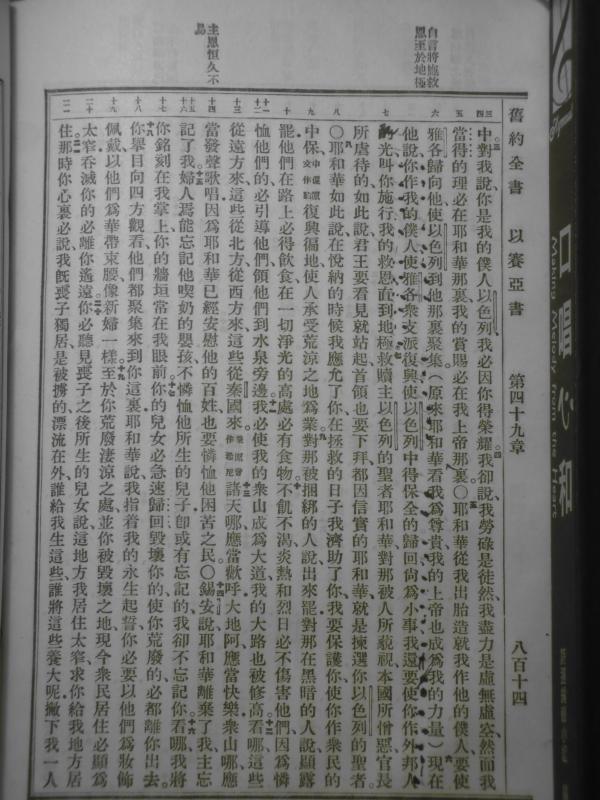 舊約全書　以賽亞書　第四十九章　八百十四
自言將施救恩至於地極
主恩恒久不易
中對我說你是我的僕人以色列我必因你得榮耀我卻說我勞碌是徒然我盡力是虛無虛空然而我
當得的理必在耶和華那裏我的賞賜必在我上帝那裏〇耶和華從我出胎造就我作他的僕人要使
雅各歸向他使以色列到他那裏聚集(原來耶和華看我為尊貴我的上帝也成為我的力量)現在
他說你作我的僕人使雅各衆支派復興使以色列中得保全的歸回尙為小事我還要使你作外邦人
的光叫你施行我的救恩直到地極救贖主以色列的聖者耶和華對那被人所藐視本國所憎惡官長
所虐待的如此說君王要看見就站起首領也要下拜都因信實的耶和華就是揀選你以色列的聖者
〇耶和華如此說在悅納的時候我應允了你在拯救的日子我濟助了你我要保護你使你作衆民的
中保中保原文作約復興徧地使人承受荒涼之地為業對那被捆綁的人說出來罷對那在黑暗的人說顯露
罷他們在路上必得飲食在一切淨光的高處必有食物不飢不渴炎熱和烈日必不傷害他們因為憐
恤他們的必引導他們領他們到水泉旁邊我必使我的衆山成為大道我的大路也被修高看哪這些
從遠方來這些從北方從西方來這些從秦國來秦原文作希尼諸天哪應當歡呼大地阿應當快樂衆山哪應
當發聲歌唱因為耶和華已經安慰他的百姓也要憐恤他困苦之民〇錫安說耶和華離棄了我主忘
記了我婦人焉能忘記他喫奶的嬰孩不憐恤他所生的兒子卽或有忘記的我卻不忘記你看哪我將
你銘刻在我掌上你的牆垣常在我眼前你的兒女必急速歸回毀壞你的使你荒廢的必都離你出去
你舉目向四方觀看他們都聚集來到你這裏耶和華說我指着我的永生起誓你必要以他們為妝飾
佩戴以他們為華帶束腰像新婦一樣至於你荒廢淒涼之處並你被毀壞之地現今衆民居住必顯為
太窄吞滅你的必離你遙遠你必聽見喪子之後所生的兒女說這地方我居住太窄求你給我地方居
住那時你心裏必說我旣喪子獨居是被擄的漂流在外誰給我生這些誰將這些養大呢撇下我一人
口唱心和
Making Melody from the Heart